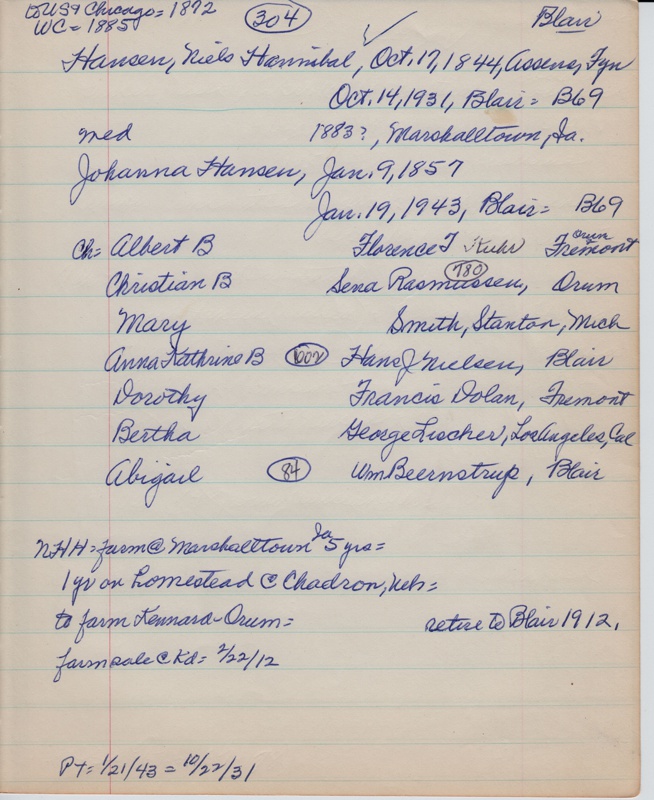 to US & Chicago = 1872 304 Blair
WC = 1885
Hansen, Niels Hannibal, Oct. 17, 1844, Assens, Fyn
Oct. 14, 1931, Blair = B69
med 1883?, Marshalltown, Ia.
Johanna Hansen, Jan. 9, 1857
Jan. 19, 1943, Blair = B69
Ch = Albert B Florence T Kuhr Orum Fremont
Christian B Sena Rasmussen, 780 Orum
Mary Smith, Stanton, Mich
Anna Kathrine B Hans J Nielsen, Blair
Dorothy Francis Dolan, Fremont
Bertha George Lischer, Los Angeles, Cal
Abigail 84 Wm Beernstrup, Blair
NHH = farm @ Marshalltown Ia 5 yrs =
1 yr on homestead @ Chadron, Neb =
to farm Kennard-Orum = retire to Blair 1912.
farm sale @ Kd = 2/22/12
PT = 1/21/43 = 10/22/31